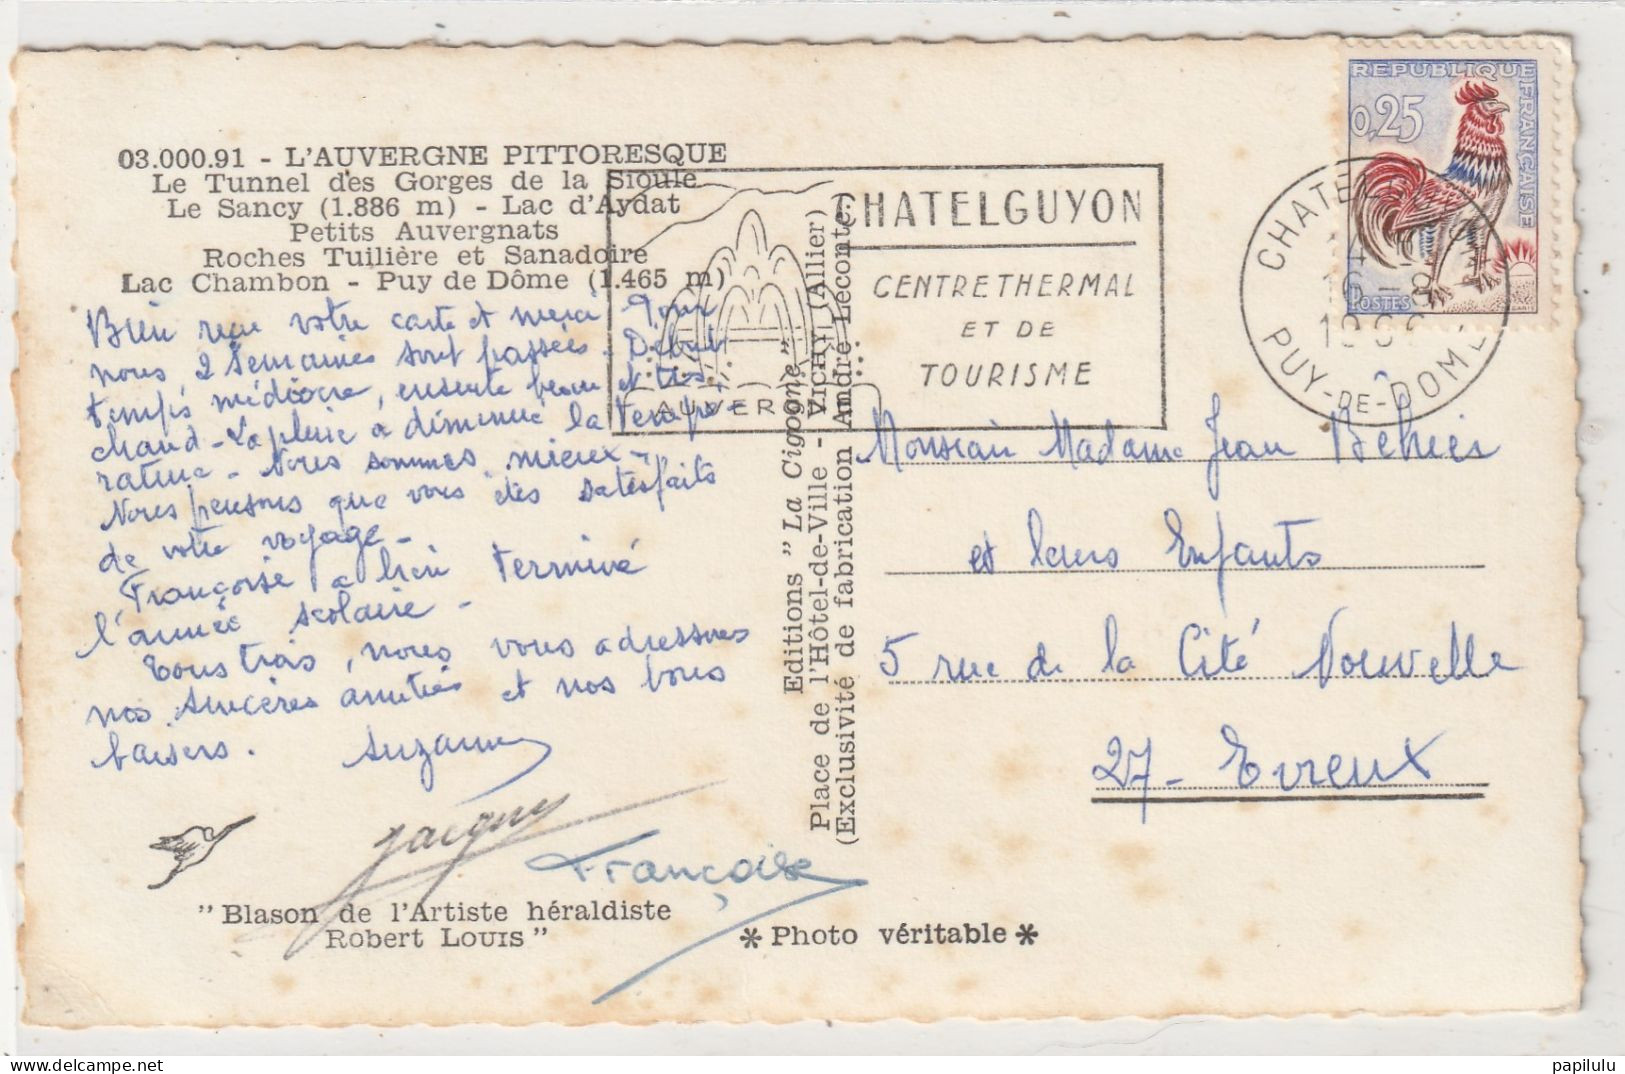 03.000.91 - L'AUVERGNE PITTORESQUE
Le Tunnel des Gorges de la Sioule
Le Sancy (1.886 m) - Lac d'Aydat
Petits Auvergnats
Roches Tuilière et Sanadoire
Lac Chambon - Puy de Dôme (1.465 m)
Bien reçu votre carte et merci. Pour
nous, 2 semaines sont passées. Début
temps médiocre, ensuite beau et très
chaud - La pluie a diminué la tempé-
rature - Nous sommes mieux -
Nous pensons que vous êtes satisfaits
de votre voyage -
Françoise a bien terminé
l'année scolaire -
Tous trois, nous vous adressons
nos sincères amitiés et nos bons
baisers. Suzanne
Jacquy
Françoise
" Blason de l'Artiste héraldiste
Robert LOUIS "
* Photo véritable *
Editions " La Cigogne "
Place de l'Hôtel-de-Ville - VICHY (Allier)
(Exclusivité de fabrication André Leconte)
CHATELGUYON
CENTRE THERMAL
ET DE
TOURISME
AUVERGNE
REPUBLIQUE FRANÇAISE
0,25
POSTES
CHATEL
16 - 8
PUY-DE-DOME
Monsieur Madame Jean Behier
et leurs Enfants
5 rue de la Cité Nouvelle
27 - Evreux
papilulu